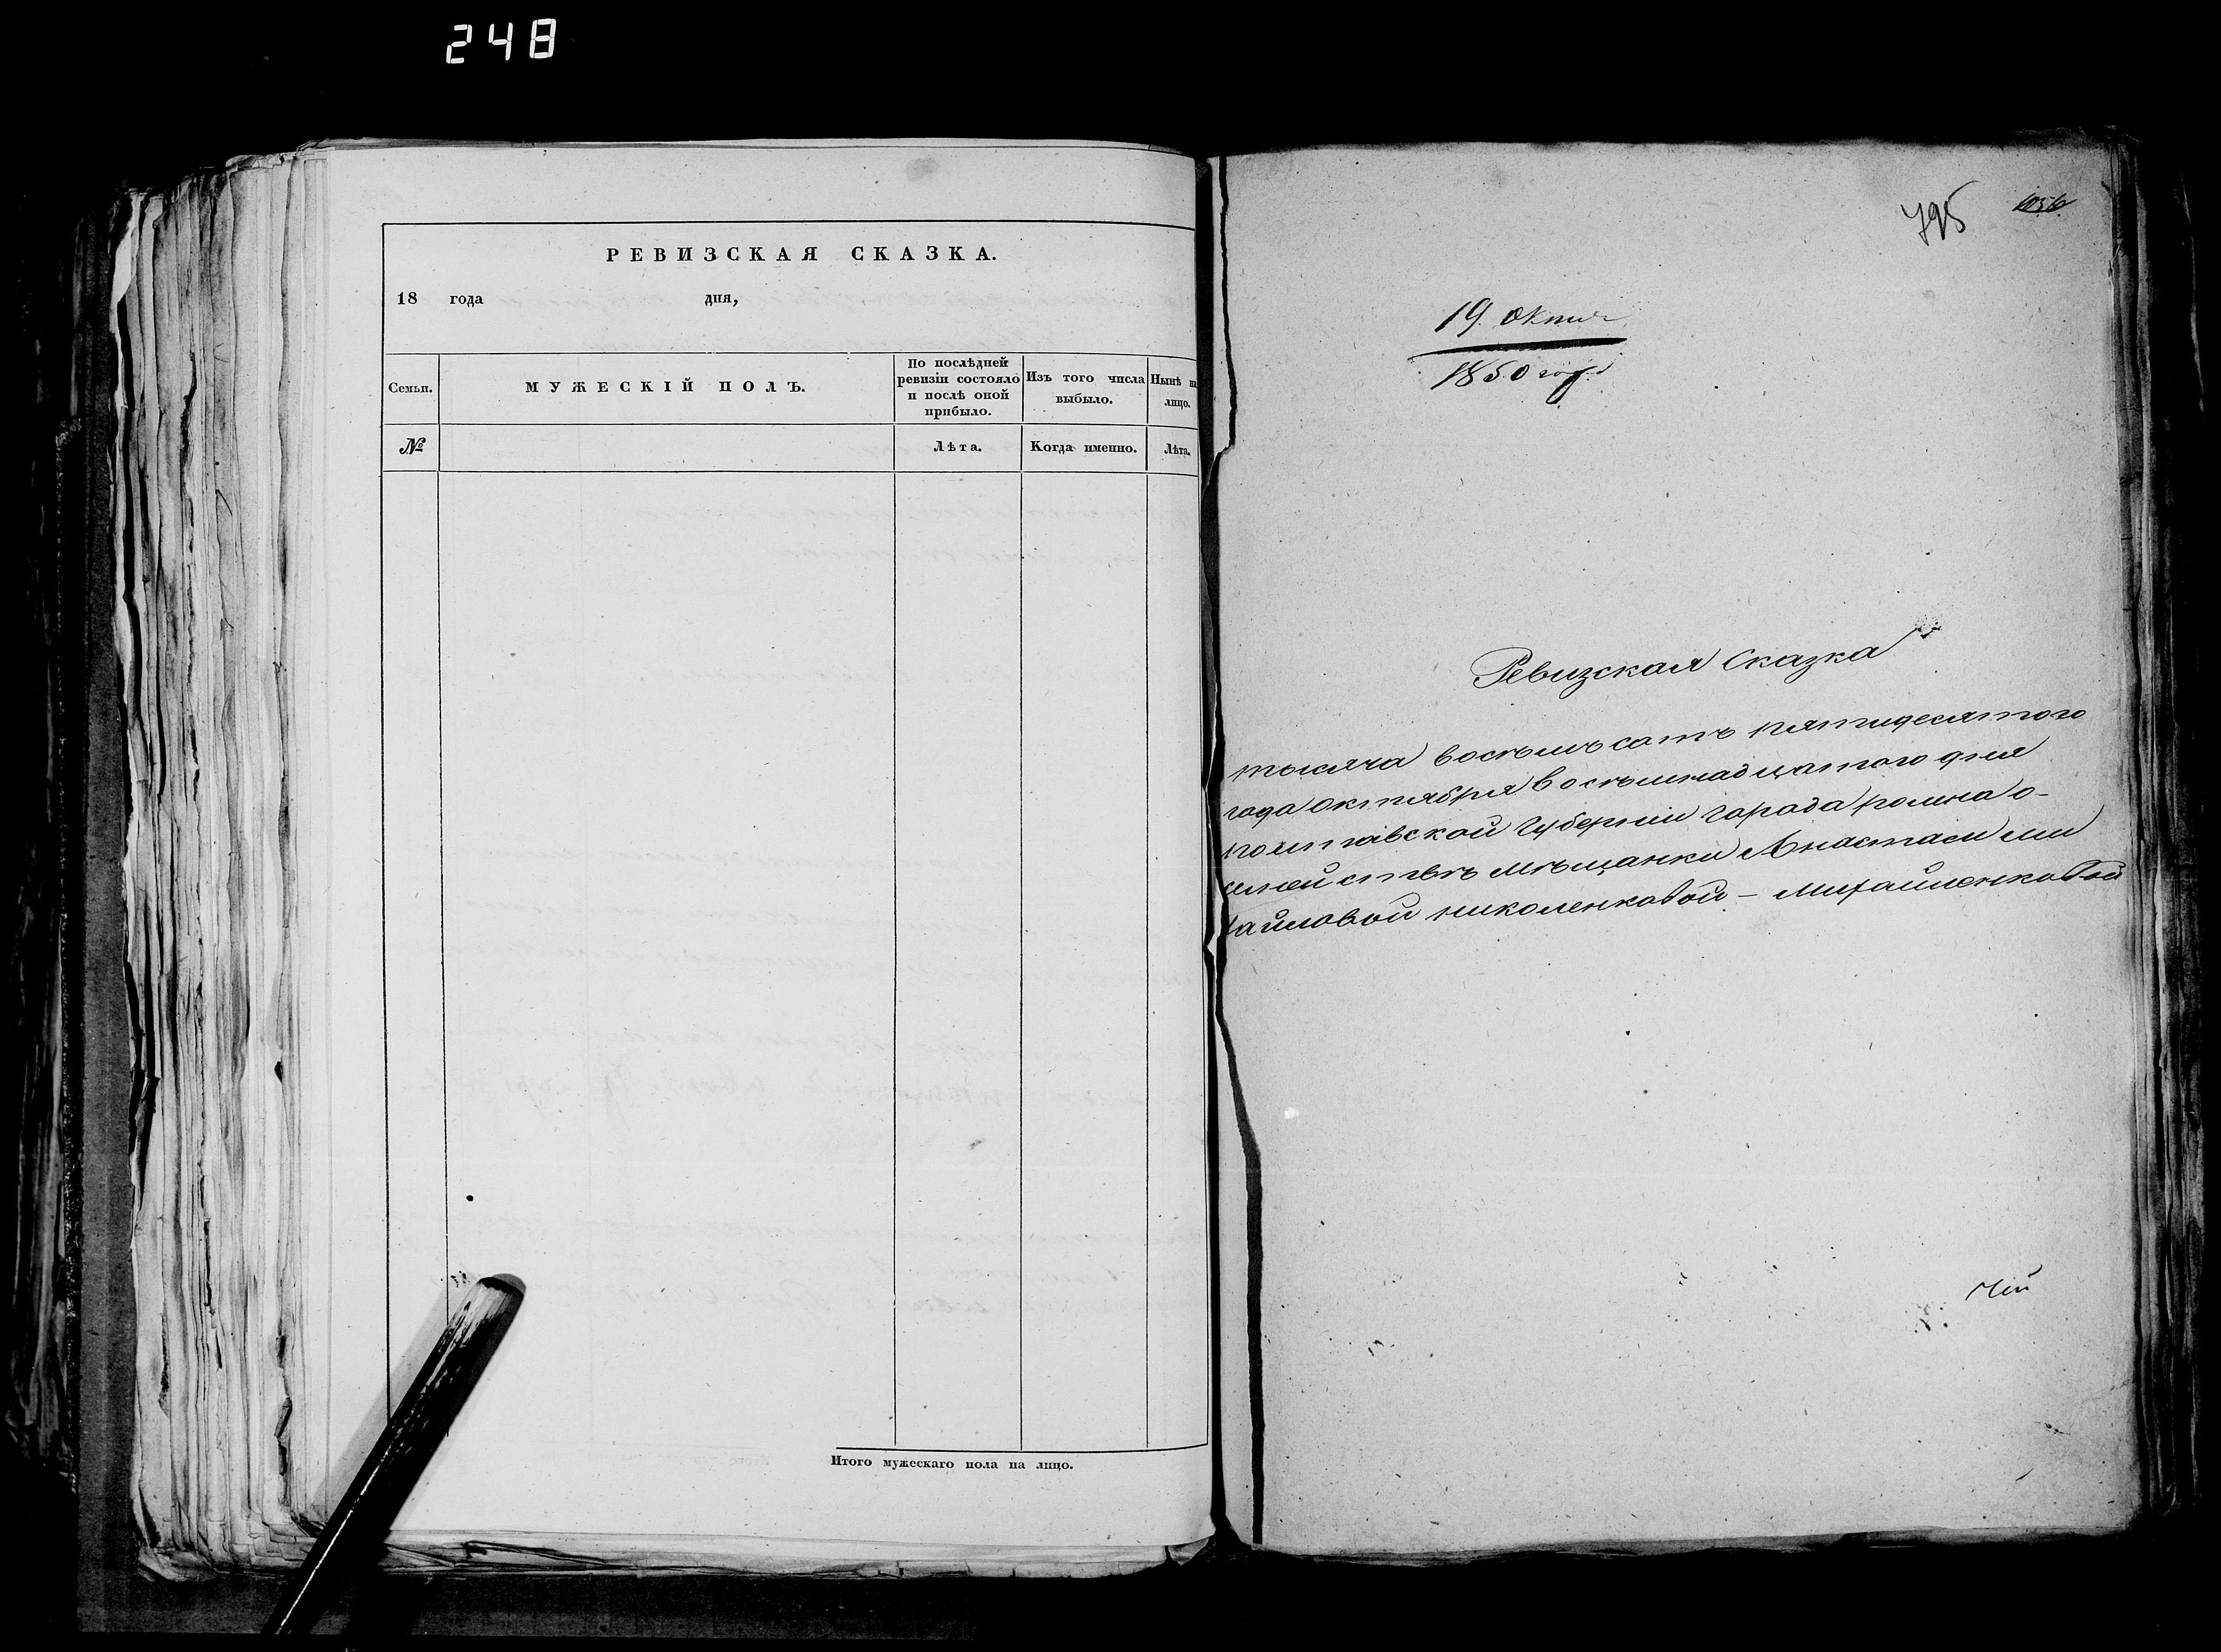 248
РЕВИЗСКАЯ СКАЗКА.
18 года дня,
Семьи.
МУЖЕСКІЙ ПОЛЪ.
По послѣдней
ревизіи состояло
и послѣ оной
прибыло.
Изъ того числа
выбыло.
Нынѣ на
лицо.
№
Лѣта.
Когда именно.
Лѣта.
Итого мужескаго пола на лицо.
795
1056
19 Октяб
1850 года
Ревизская Сказка
тысяча восѣмъ сотъ пятидесятого
года Октября восѣмнадцатого дня
полтавской Губерніи Города ромна о-
семействѣ мѣщанки Анастасіи ми
хайловой николенковой - михайленковой